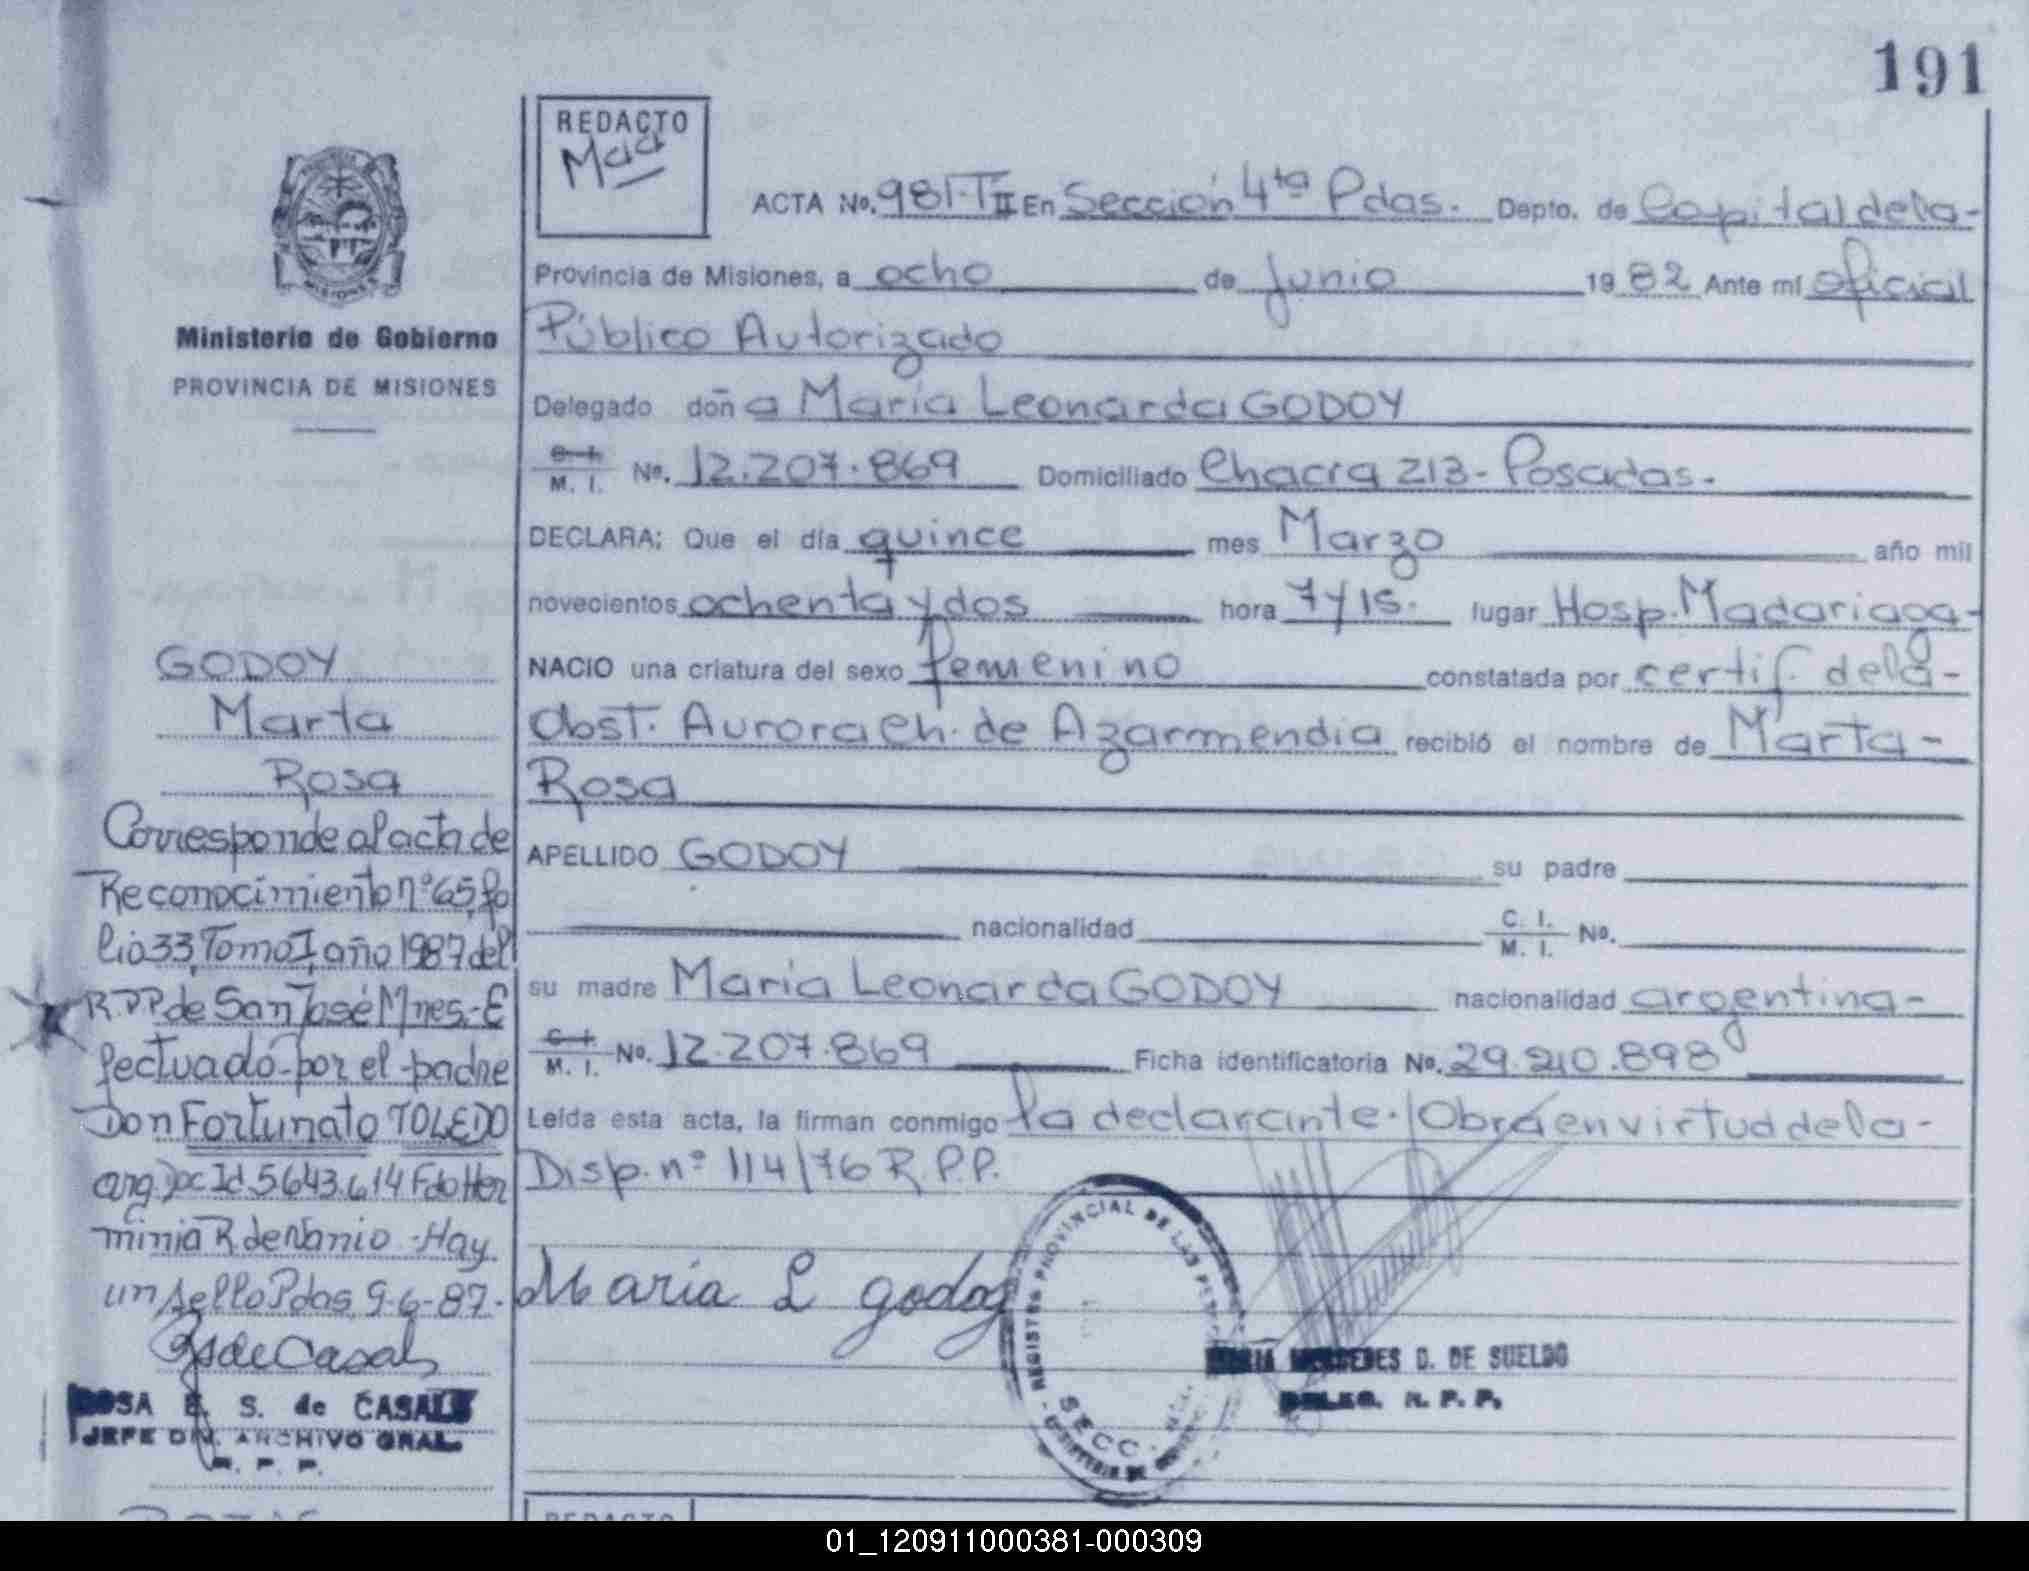 191
REDACTO
Maa
ACTA No. 981-T II En Sección 4ta Pdas. Depto. de Capital de la-
Provincia de Misiones, a ocho de Junio 1982 Ante mí oficial
Público Autorizado
Delegado doña María Leonarda GODOY
C. I. / M. I. No. 12.207.869 Domiciliado Chacra 213- Posadas.
DECLARA: Que el día quince mes Marzo año mil
novecientos ochenta y dos hora 7 y 15. lugar Hosp. Madariaga-
NACIO una criatura del sexo femenino constatada por certif. de la-
Obst. Aurora Ch. de Azarmendia recibió el nombre de Marta-
Rosa
APELLIDO GODOY su padre
nacionalidad C. I. / M. I. No.
su madre María Leonarda GODOY nacionalidad argentina-
C. I. / M. I. No. 12.207.869 Ficha identificatoria No. 29.210.898
Leída esta acta, la firman conmigo la declarante. / Obra en virtud de la-
Disp. nº 114/76 R.P.P.
María L godoy
REGISTRO PROVINCIAL DE LAS
SECC.
MARIA MERCEDES D. DE SUELDO
DELEG. R. P. P.
MISIONES
Ministerio de Gobierno
PROVINCIA DE MISIONES
GODOY
Marta
Rosa
Corresponde al acta de
Reconocimiento nº 65, fo
lio 33, Tomo I, año 1987 del
R.P.P. de San José Mnes.- E
fectuado por el padre
Don Fortunato TOLEDO
arg. Doc Id. 5643.614 Fdo Her
minia R. de Nanio - Hay
un sello Pdas, 9-6-87.
RSdeCasals
ROSA E. S. de CASALS
JEFE DIV. ARCHIVO GRAL.
R. P. P.
REDACTO
01_120911000381-000309